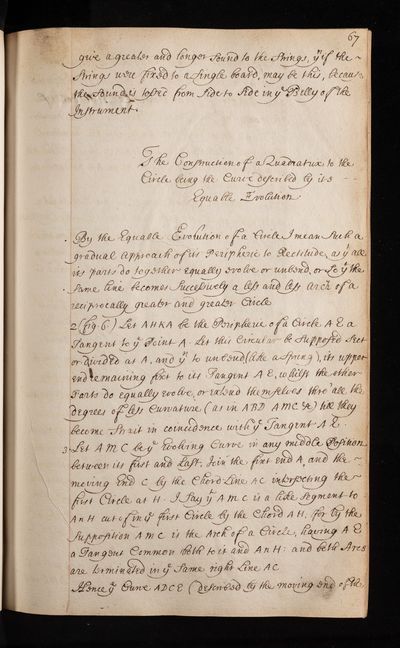 67
give a greater and longer Sound to the Strings, yn if the ~
Strings were fixed to a Single board, may be this, because
the Sound is tossed from Side to Side in ye Belly of the
Instrument.
The Construction of a Quadratrix to the
Circle being the Curve described by its --
Equable Evolution
By the Equable Evolution of a Circle I mean Such a
gradual approach of its Peripherie to Rectitude, as yt all
its parts do together equally evolve or unbend, or So yt the
Same line becomes Successively a less and less Arch of a
reciprocally greater and greater Circle
2 (fig 6) Let AHKA be the Peripherie of a Circle AE a
Tangent to ye Point A. Let this Circular be Supposed Sect
or divided at A, and yn to unbend (like a Spring), its upper
end remaining fixt to its Tangent AE, whilst the other
Parts do equally evolve, or unbend themselves thro' all the
degrees of less Curvature (as in ABD AMC &c) till they
become Strait in coincidence with ye Tangent AE.
3. Let AMC be ye evolving Curve in any middle Position
between its first and Last, Join the fixt end A, and the ~
moving end C by the Chord Line AC intersecting the ~
first Circle at H. I Say yt AMC is a like Segment to
AnH cut of in ye first Circle by the Chord AH, for by the
Supposition AMC is the Arch of a Circle, having AE
a Tangent Common both to it and AnH: and both Arcs
are terminated in ye Same right Line AC
Hence ye Curve ADCE (described by the moving end of the